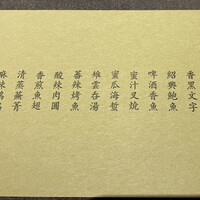 香黑文字
紹興鮑魚
啤酒香魚
蜜汁叉燒
蜜瓜海蜇
雲吞湯
辣烤魚
酸辣肉圓
香煎魚翅
清蒸
麻辣